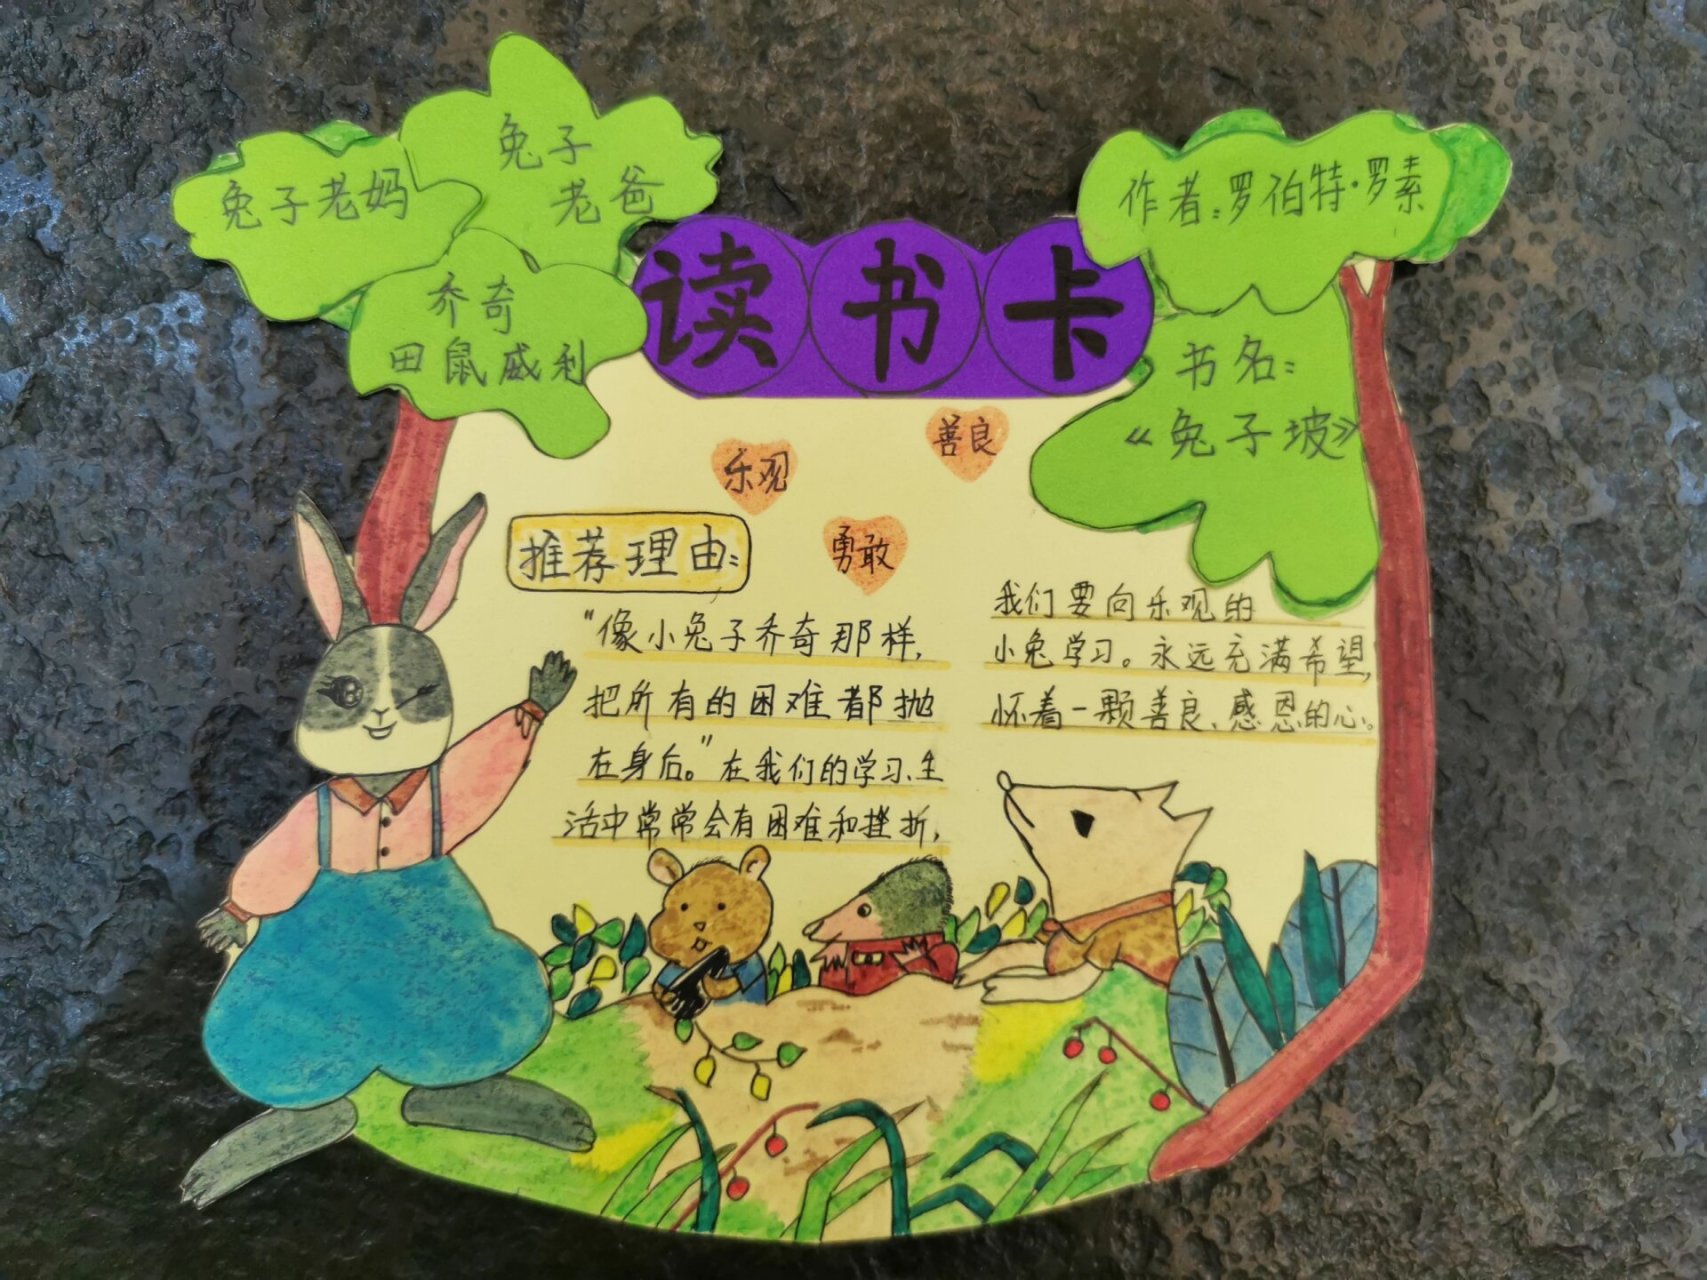 兔子老妈
兔子
老爸
乔奇
田鼠威利
读书卡
作者:罗伯特·罗素
书名:
《兔子坡》
乐观
善良
勇敢
推荐理由:
“像小兔子乔奇那样,
把所有的困难都抛
在身后。”在我们的学习、生
活中常常会有困难和挫折,
我们要向乐观的
小兔学习。永远充满希望,
怀着一颗善良、感恩的心。